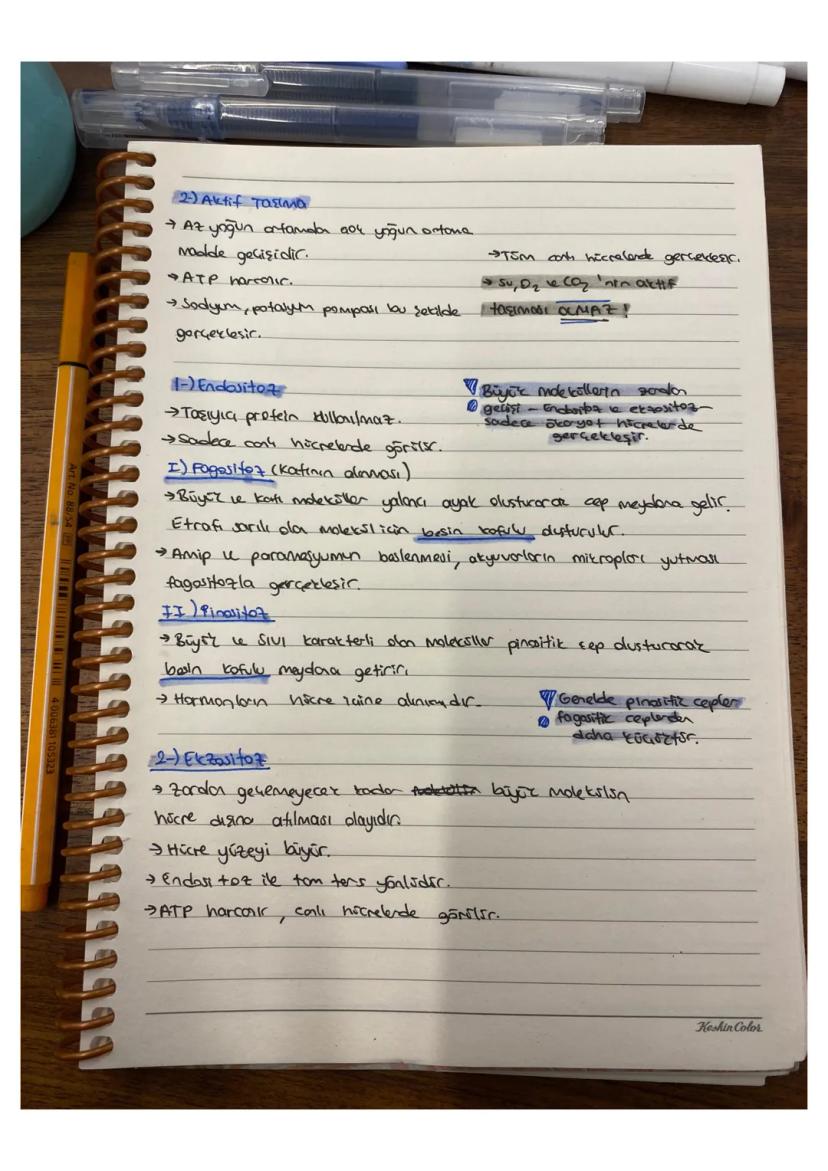 2-) Aktif Taşıma
→ Az yoğun ortamdan çok yoğun ortama
madde geçişidir.
→ ATP harcanır.
→ Sodyum, potasyum pompası bu şekilde
gerçekleşir.
→ Tüm canlı hücrelerde gerçekleşir.
→ Su, O₂ ve CO₂ 'nin aktif
taşıması OLMAZ !
1-) Endositoz
→ Taşıyıcı protein kullanılmaz.
→ Sadece canlı hücrelerde görülür.
Büyük moleküllerin zardan
geçişi - Endositoz ve ekzositoz -
sadece ökaryot hücrelerde
gerçekleşir.
I) Fagositoz (Katının alınması)
→ Büyük ve katı moleküller yalancı ayak oluşturarak cep meydana gelir.
Etrafı sarılı olan molekül için besin kofulu oluşturulur.
→ Amip ve paramesyumun beslenmesi, akyuvarların mikropları yutması
fagositozla gerçekleşir.
II) Pinositoz
→ Büyük ve SIVI karakterli olan moleküller pinositik cep oluşturarak
besin kofulu meydana getirir.
→ Hormonların hücre içine alınımıdır.
Genelde pinositik cepler
fagositik ceplerden
daha küçüktür.
2-) Ekzositoz
→ Zardan geçemeyecek kadar büyük molekülün
hücre dışına atılması olayıdır.
→ Hücre yüzeyi büyür.
→ Endositoz ile tam ters yönlüdür.
→ ATP harcanır, canlı hücrelerde görülür.
Keskin Color
Art. No. 88/54
4 006381 105323